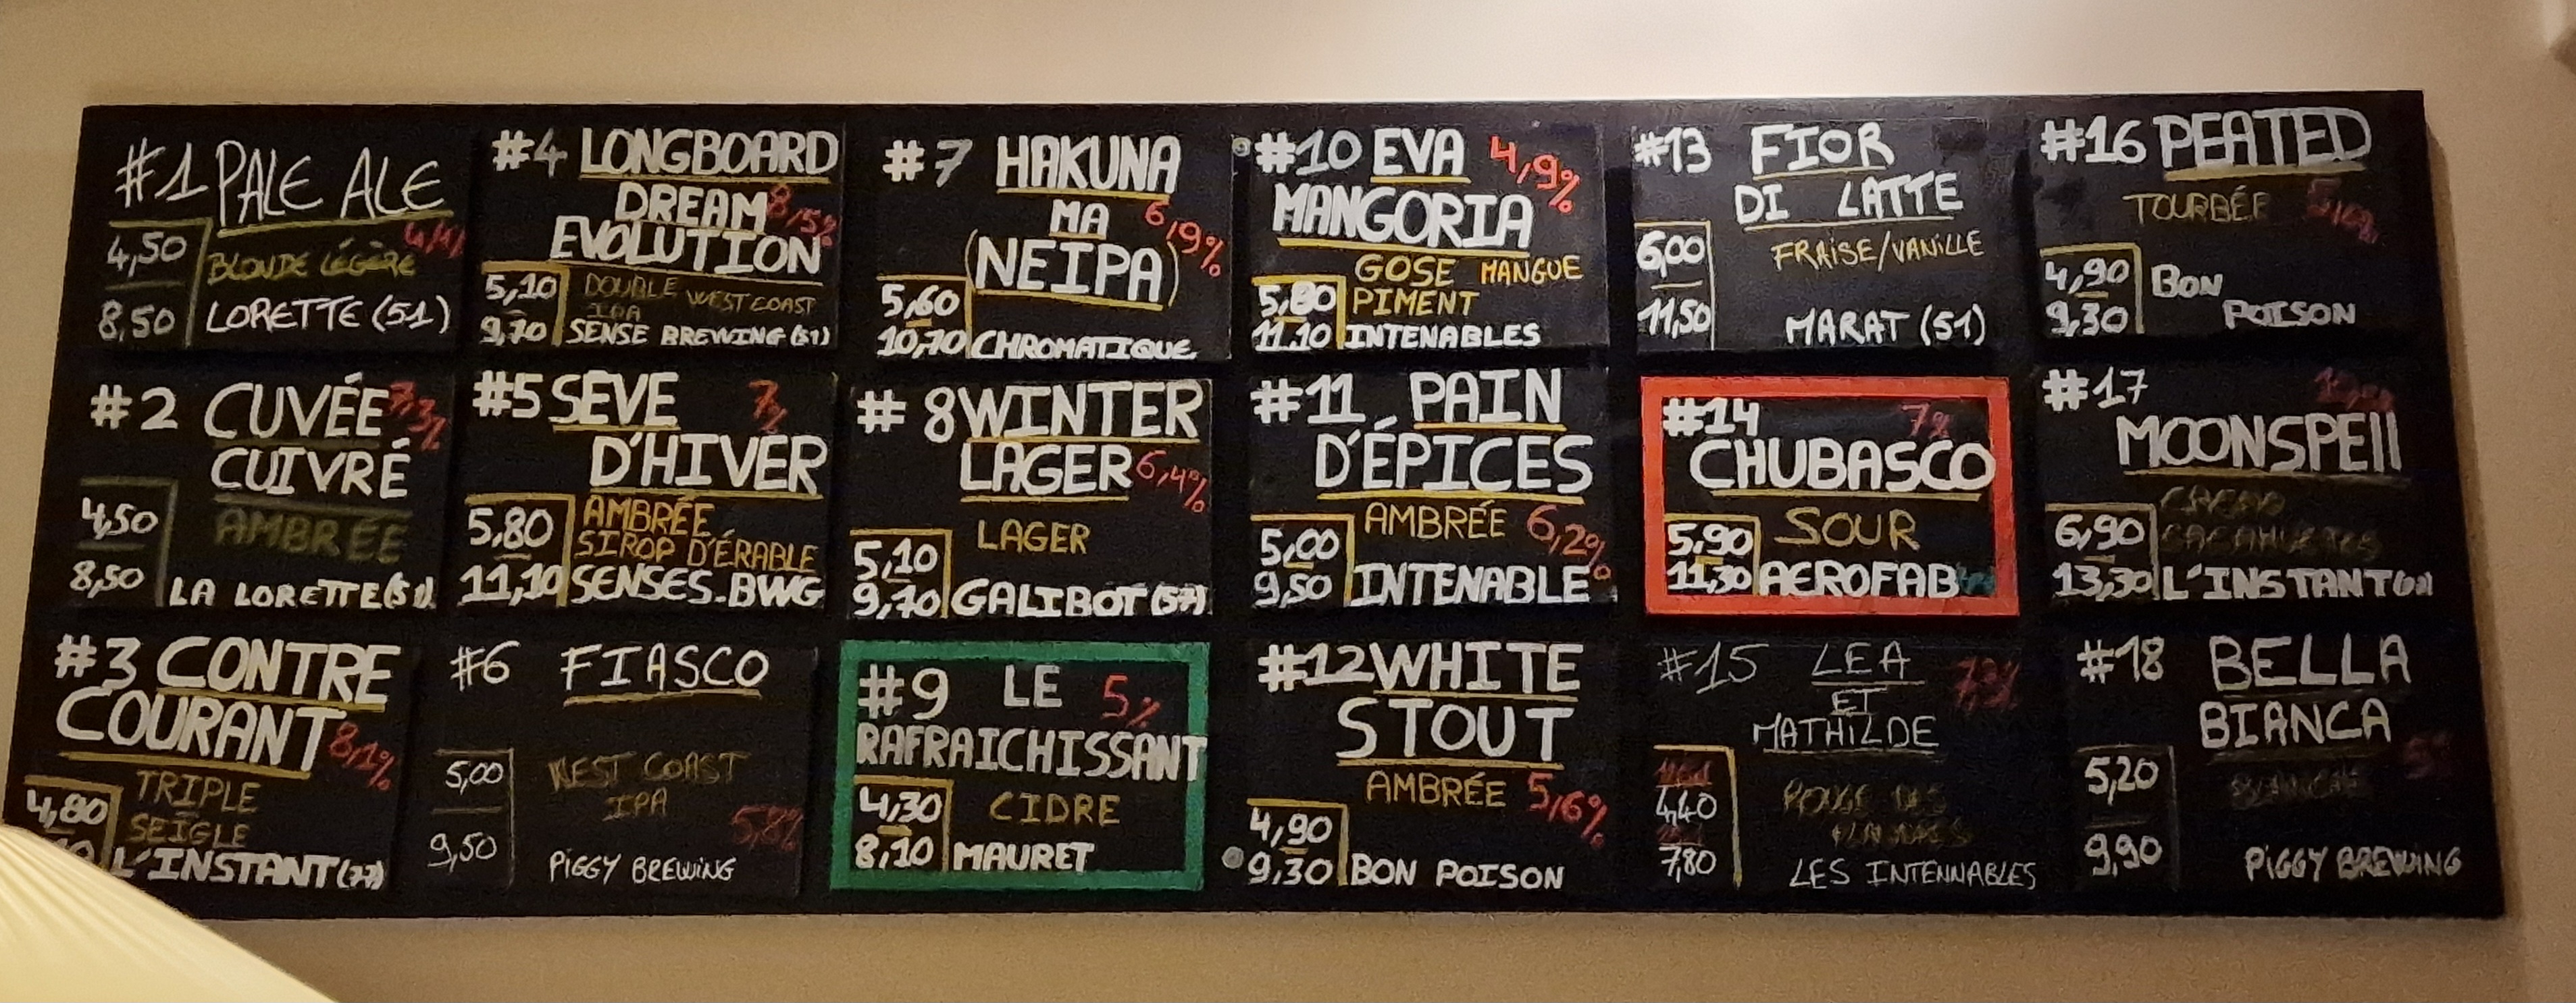 #1 PALE ALE
4,50
BLONDE LÉGÈRE
8,50
LORETTE (51)
#2 CUVÉE 7,3%
CUIVRÉ
4,50
AMBRÉE
8,50
LA LORETTE (51)
#3 CONTRE
COURANT 8,1%
4,80
TRIPLE
SEIGLE
L'INSTANT (77)
#4 LONGBOARD
DREAM 8,5%
EVOLUTION
5,10
DOUBLE WEST COAST
IPA
9,70
SENSE BREWING (51)
#5 SEVE 7%
D'HIVER
5,80
AMBRÉE
SIROP D'ÉRABLE
11,10
SENSES.BWG
#6 FIASCO
5,00
WEST COAST
IPA
5,8%
9,50
PIGGY BREWING
#7 HAKUNA
MA 6,9%
(NEIPA)
5,60
10,70
CHROMATIQUE
#8 WINTER
LAGER 6,4%
LAGER
5,10
9,70
GALIBOT (57)
#9 LE 5%
RAFRAICHISSANT
4,30
CIDRE
8,10
MAURET
#10 EVA 4,9%
MANGORIA
GOSE MANGUE
5,80
PIMENT
11.10
INTENABLES
#11 PAIN
D'ÉPICES
AMBRÉE 6,2%
5,00
9,50
INTENABLE
#12 WHITE
STOUT
AMBRÉE 5,6%
4,90
9,30
BON POISON
#13 FIOR
DI LATTE
6,00
FRAISE/VANILLE
11,50
MARAT (51)
#14 7%
CHUBASCO
5,90
SOUR
11,30
AEROFAB
#15 LEA
ET
MATHILDE
4,40
ROUGE DES
7,80
LES INTENNABLES
#16 PEATED
TOURBÉE
4,90
BON
9,30
POISON
#17
MOONSPEll
CACAO
6,90
CACAHUETES
13,30
L'INSTANT
#18 BELLA
BIANCA
5,20
5%
BLANCHE
9,90
PIGGY BREWING